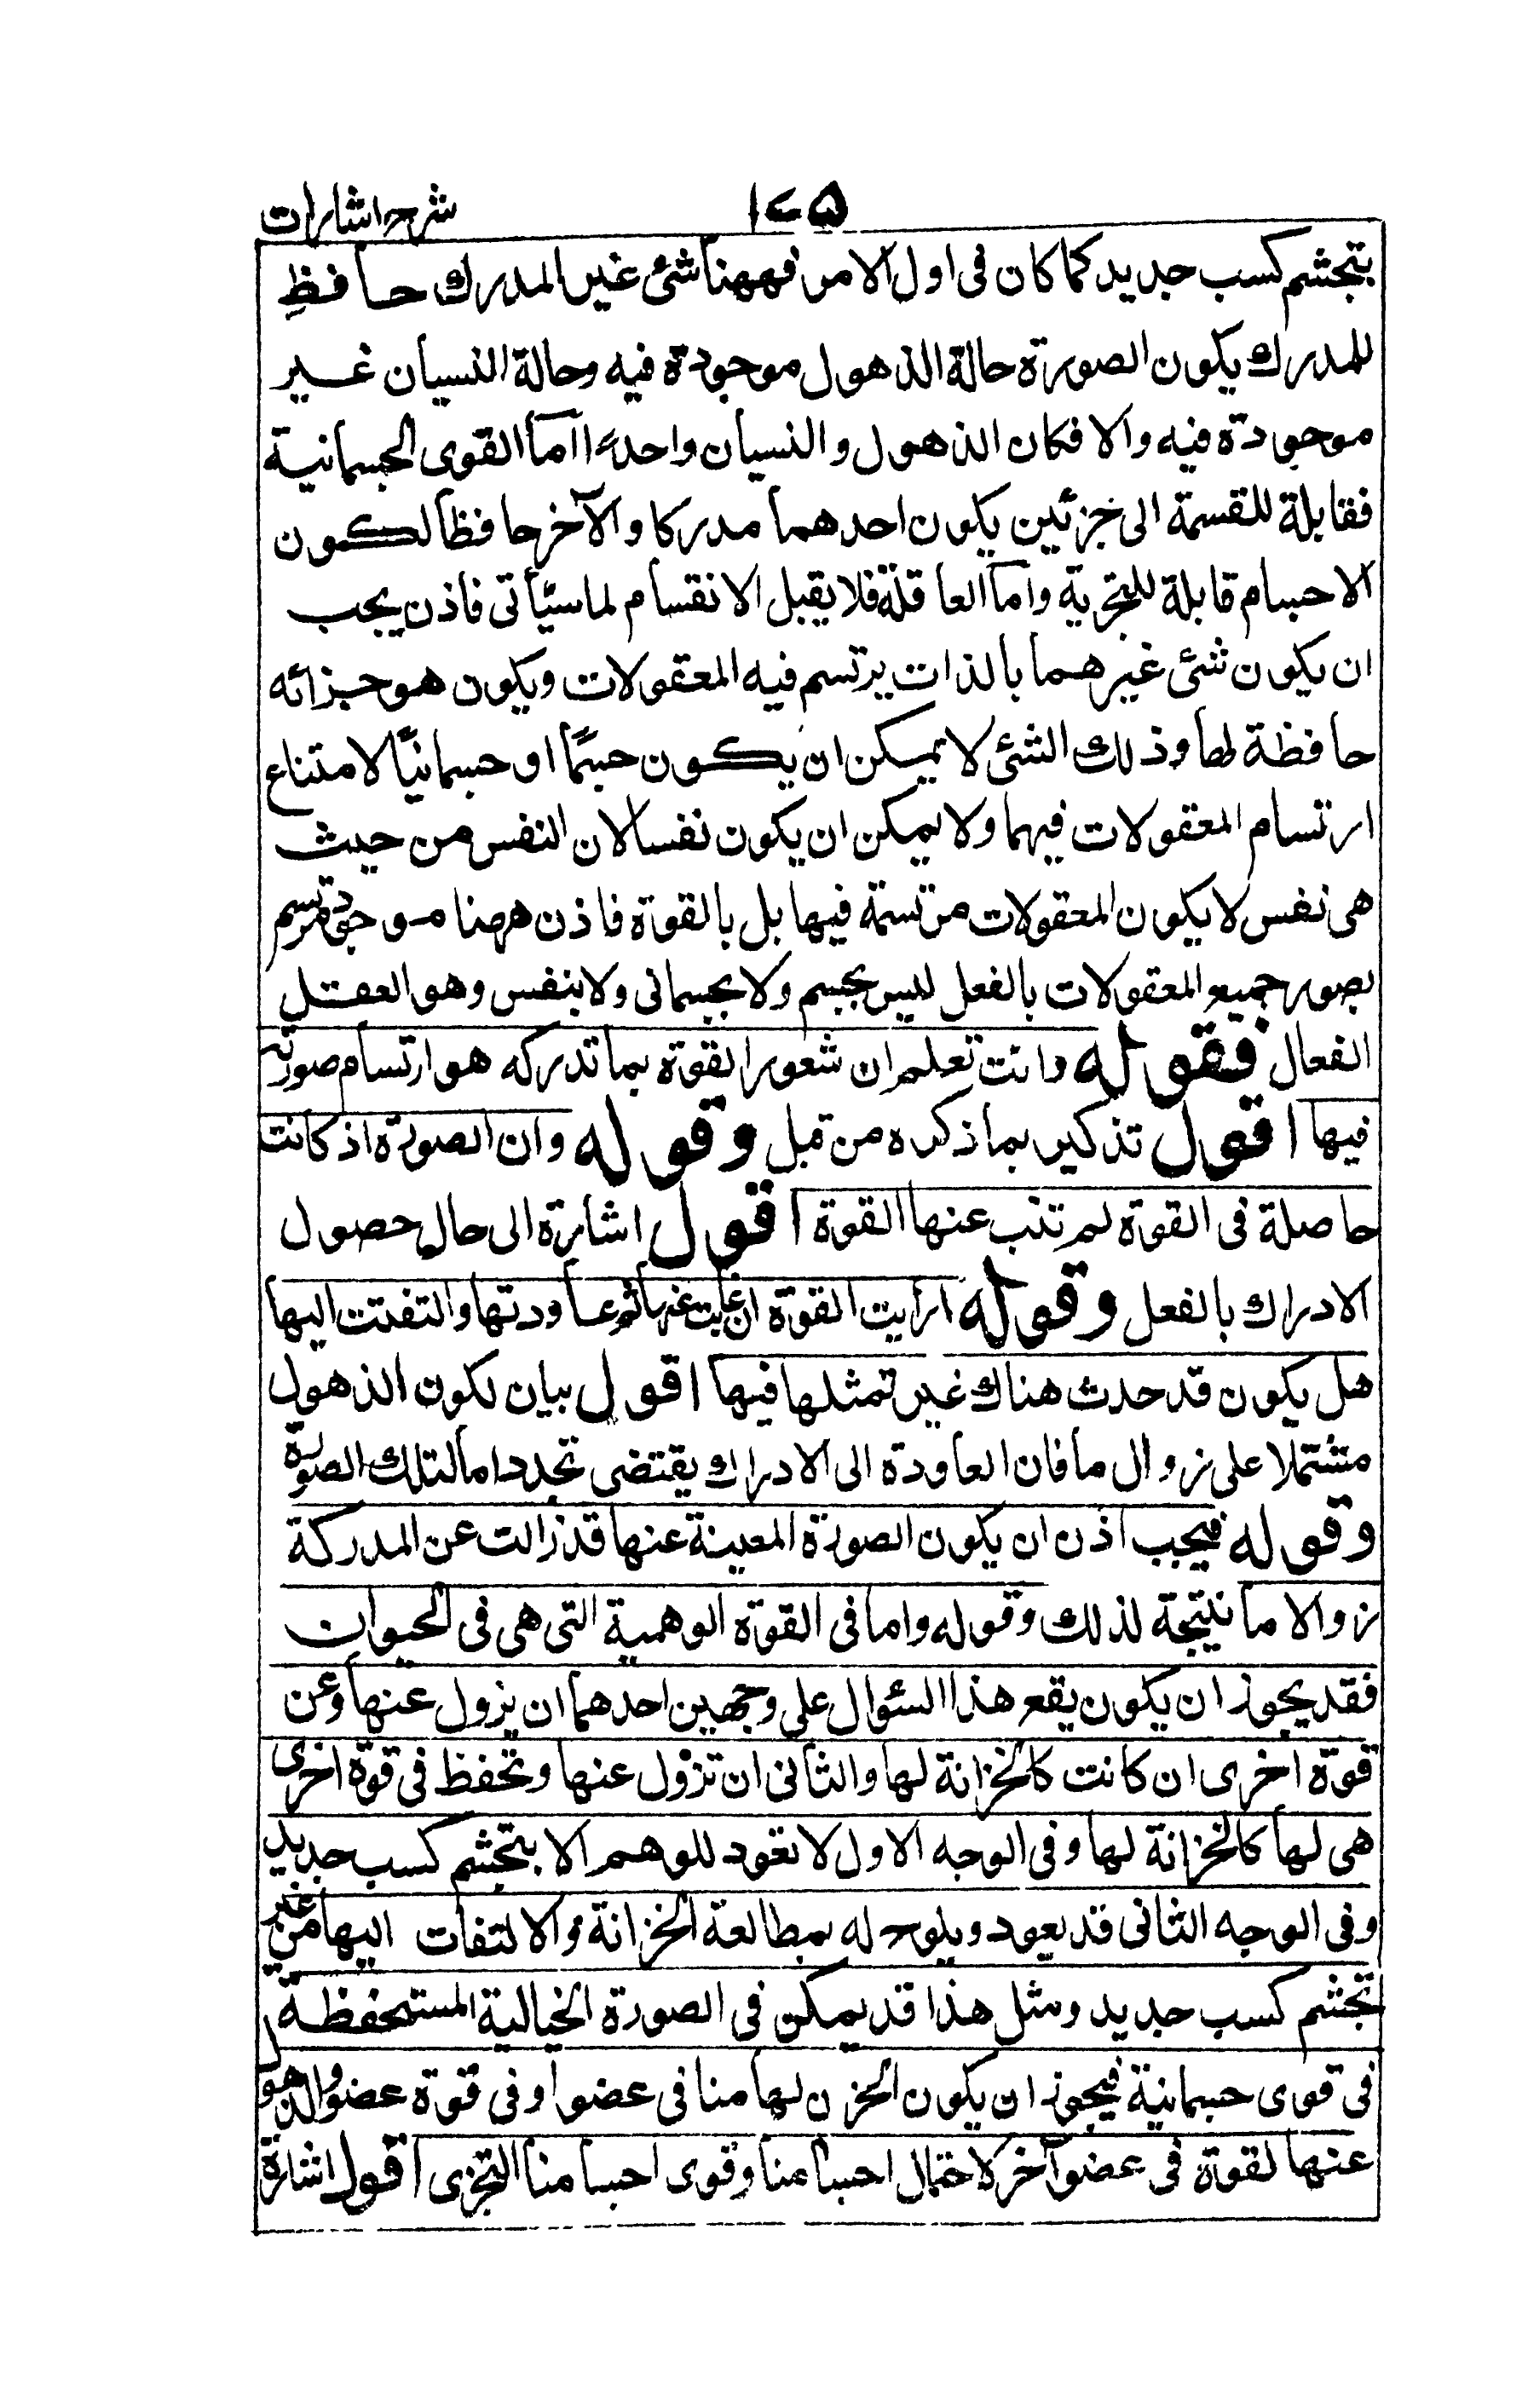 شرح اشارات ١٧٥
بتجشم كسب جديد كما كان فى اول الامر فههنا شئ غير المدرك حافظ
للمدرك يكون الصورة حالة الذهول موجودة فيه وحالة النسيان غير
موجودة فيه والا فكان الذهول والنسيان واحدًا اما القوى الجسمانية
فقابلة للقسمة الى جزئين يكون احدهما مدركا والآخر حافظا لكون
الاجسام قابلة للتجزية واما العاقلة فلا يقبل الانقسام لما سيأتى فاذن يجب
ان يكون شئ غيرهما بالذات يرتسم فيه المعقولات ويكون هو خزانه
حافظة لها وذلك الشئ لا يمكن ان يكون جسمًا او جسمانيًا لامتناع
ارتسام المعقولات فيهما ولا يمكن ان يكون نفسا لان النفس من حيث
هى نفس لا يكون المعقولات مرتسمة فيها بل بالقوة فاذن ههنا موجود مرتسم
بصور جميع المعقولات بالفعل ليس بجسم ولا بجسمانى ولا بنفس وهو العقل
الفعال فقوله وانت تعلم ان شعور القوة بما تدركه هو ارتسام صورته
فيها اقول تذكير بما ذكره من قبل وقوله وان الصورة اذ كانت
حاصلة فى القوة لم تغب عنها القوة اقول اشارة الى حال حصول
الادراك بالفعل وقوله ارأيت القوة ان غابت عنها ثم عاودتها والتفتت اليها
هل يكون قد حدث هناك غير تمثلها فيها اقول بيان لكون الذهول
مشتملا على زوال ما فان العاودة الى الادراك يقتضى تجدد اما لتلك الصورة
وقوله فيجب اذن ان يكون الصورة المعينة عنها قد زالت عن المدركة
زوالا ما نتيجة لذلك وقوله واما فى القوة الوهمية التى هى فى الحيوان
فقد يجوز ان يكون يقع هذا السئوال على وجهين احدهما ان يزول عنها وعن
قوة اخرى ان كانت كالخزانة لها والثانى ان تزول عنها وتحفظ فى قوة اخرى
هى لها كالخزانة لها وفى الوجه الاول لا تعود للوهم الا بتجشم كسب جديد
وفى الوجه الثانى قد يعود ويلوح له بمطالعة الخزانة والالتفات اليها من غير
تجشم كسب جديد ومثل هذا قد يمكن فى الصورة الخيالية المستحفظة
فى قوى جسمانية فيجوز ان يكون الخزن لها منا فى عضو او فى قوة عضو والذهول
عنها لقوة فى عضو آخر لاحتمال اجسامنا وقوى اجسامنا التجزى اقول اشارة